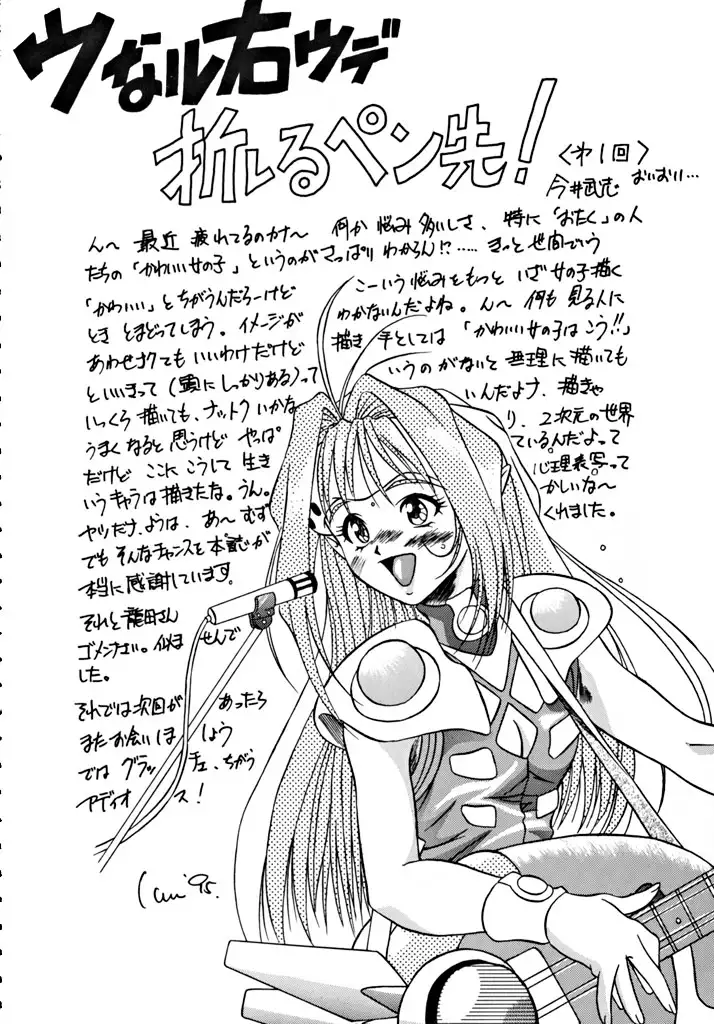 ウなル右ウデ
折レるペン先！
〈オ1回〉
今井武志 おいおい…
ん〜 最近 疲れてるのカナ〜 何か悩み多いしさ、特に「おたく」の人
たちの「かわいい女の子」というのがさっぱりわからん!?…… きっと世間でいう
「かわいい」とちがうんだろーけど こーいう悩みをもっと いざ女の子描く
とき とまどってしまう。イメージが わかないんだよね。ん〜 何も 見る人に
あわせナクてもいいわけだけど 描き手としては「かわいい女の子はこう!!」
といいきって（頭にしっかりある）って いうのがないと無理に描いても
いっくら描いても、ナットクいかな いんだよナ、描きゃ
うまくなると思うけど やっぱ り、2次元の世界
だけど ここに こうして 生き ているんだよって
いうキャラは描きたいな。うん。 心理表写って
ヤツだけ、ようは、あ〜 むず かしいな〜
でも そんなチャンスを本誌が くれました。
本当に感謝しています。
それと龍田さん
ゴメンナさい。似ま せんで
した。
それでは次回が あったら
またお会いしま しょう
では グラッ チェ、ちがう
アディオ ス！
'95.